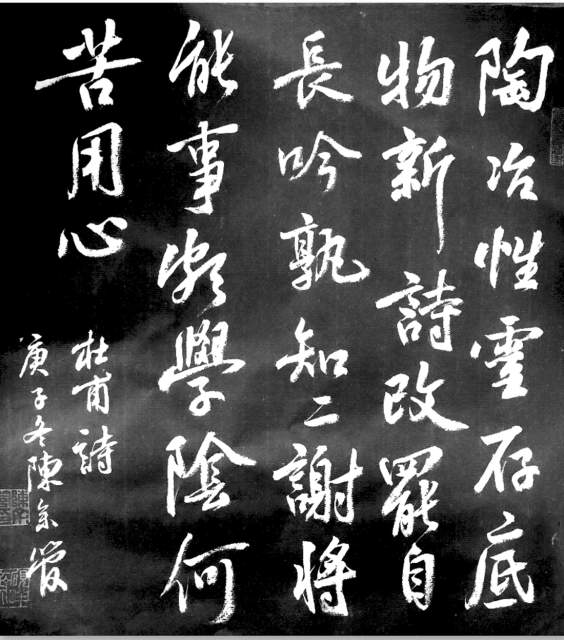 陶冶性靈存底
物新詩改罷自
長吟孰知二謝將
能事頗學陰何
苦用心
杜甫詩
庚子冬陳